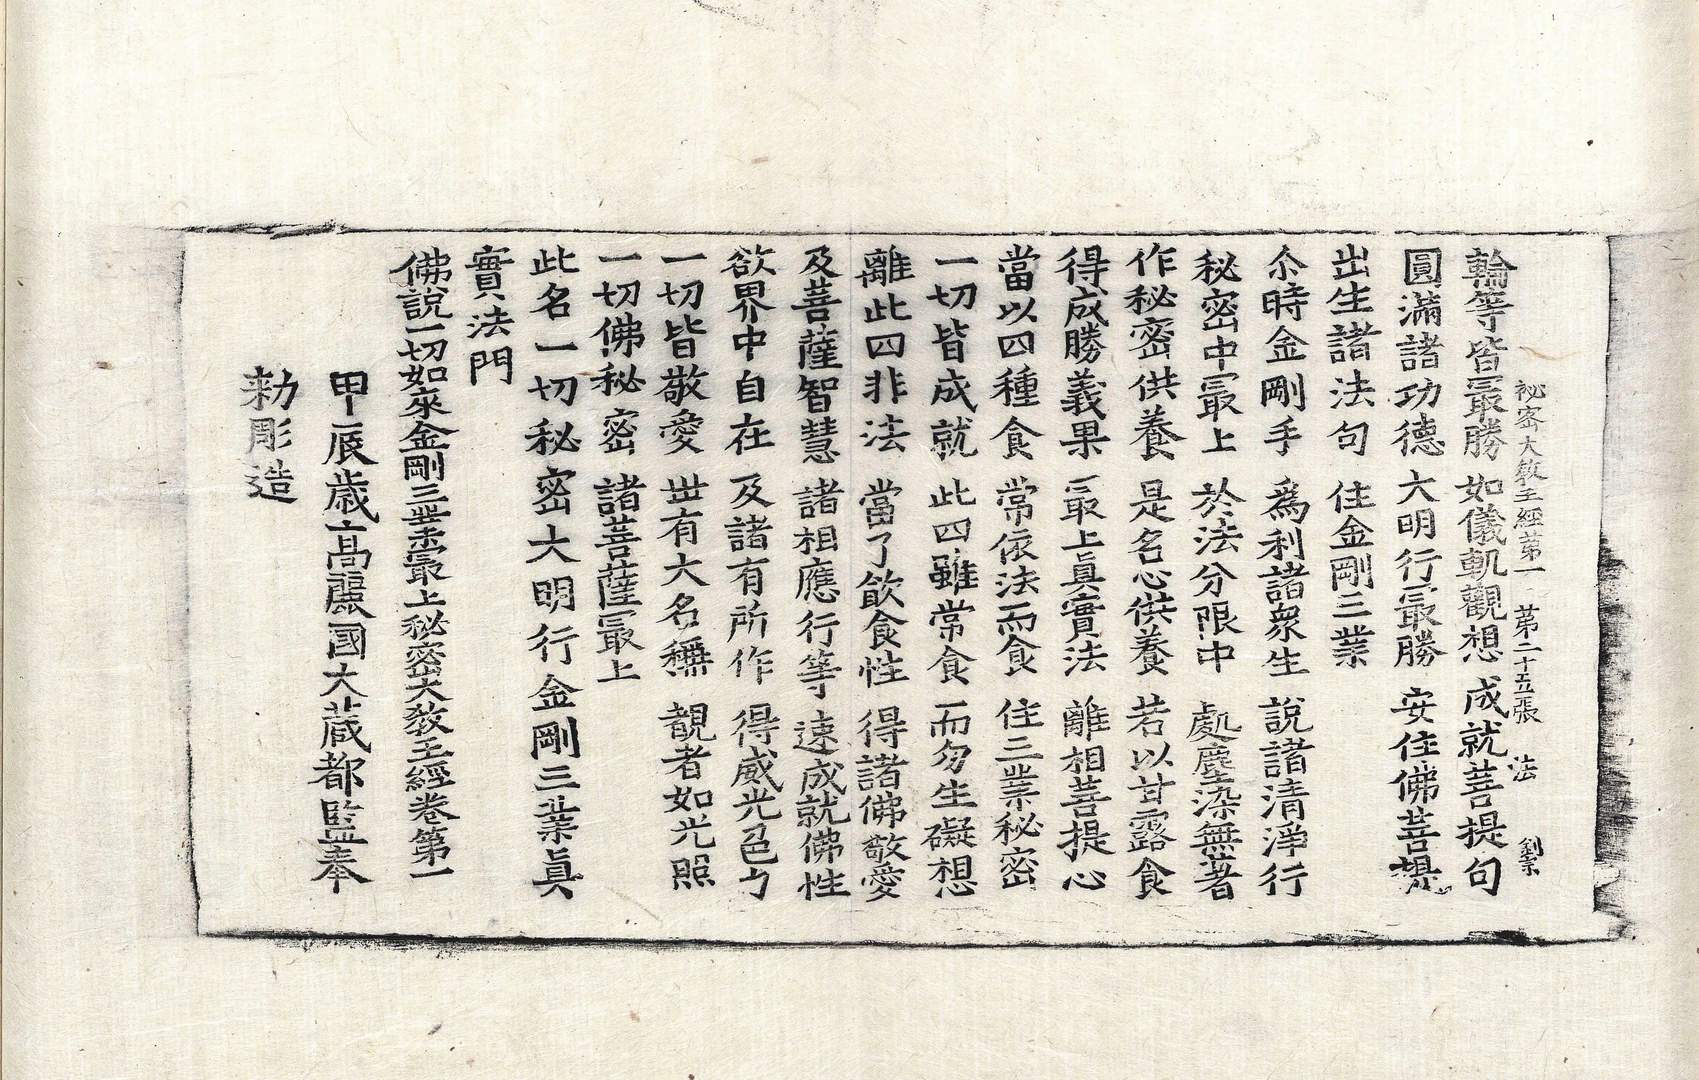 祕密大敎王經第一 第二十五張 法 劉宗
輪等皆最勝 如儀軌觀想 成就菩提句
圓滿諸功德 大明行最勝 安住佛菩提
出生諸法句 住金剛三業
尒時金剛手 爲利諸衆生 說諸清淨行
秘密中最上 於法分限中 處塵染無著
作秘密供養 是名心供養 若以甘露食
得成勝義果 最上眞實法 離相菩提心
當以四種食 常依法而食 住三業秘密
一切皆成就 此四雖常食 而勿生礙想
離此四非法 當了飲食性 得諸佛敬愛
及菩薩智慧 諸相應行等 速成就佛性
欲界中自在 及諸有所作 得威光色力
一切皆敬愛 丗有大名稱 覩者如光照
一切佛秘密 諸菩薩最上
此名一切秘密大明行金剛三業眞
實法門
佛說一切如來金剛三業最上秘密大敎王經卷第一
甲辰歲高麗國大藏都監奉
勅彫造